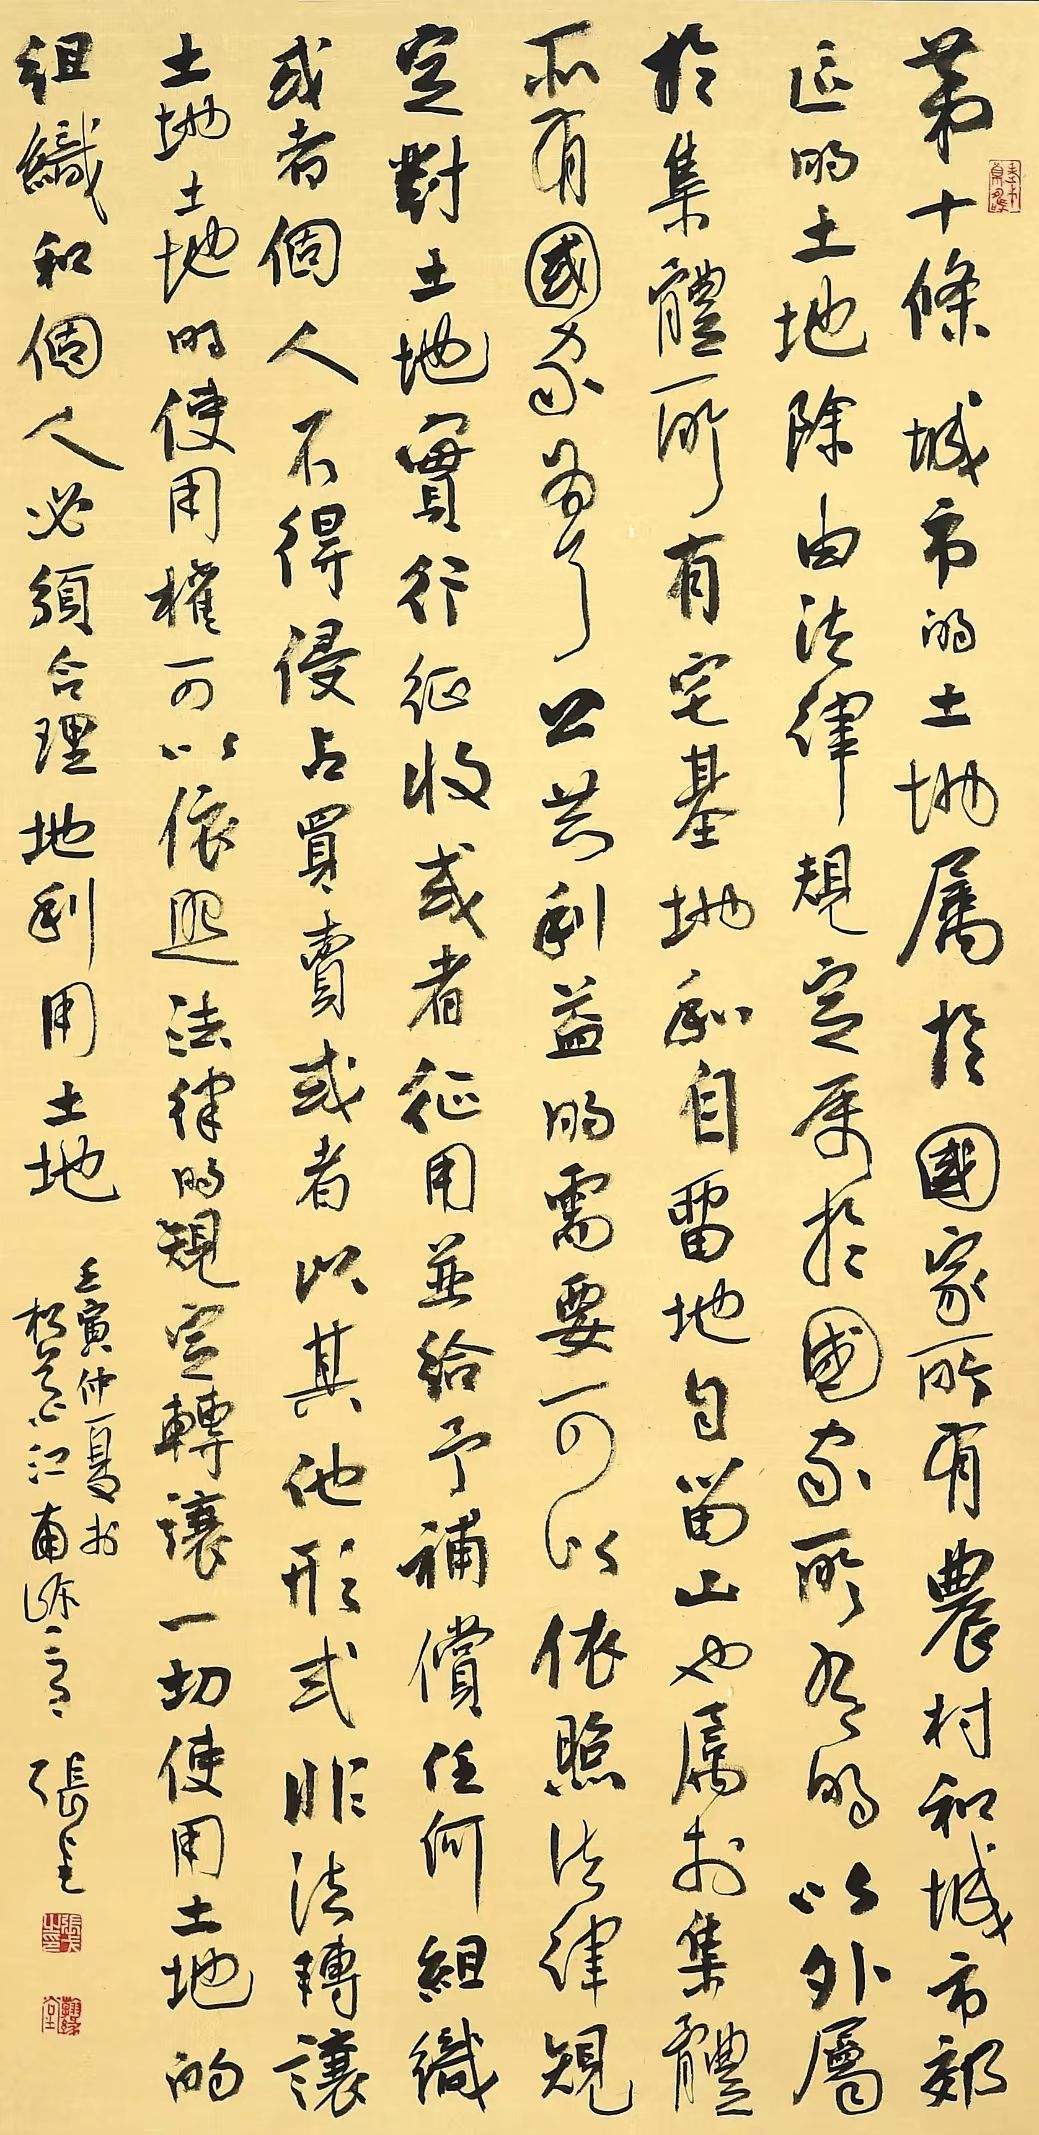 第十條城市的土地屬於國家所有農村和城市郊
區的土地除由法律規定屬於國家所有的以外屬
於集體所有宅基地和自留地自留山也屬於集體
所有國家為了公共利益的需要可以依照法律規
定對土地實行征收或者征用並給予補償任何組織
或者個人不得侵占買賣或者以其他形式非法轉讓
土地土地的使用權可以依照法律的規定轉讓一切使用土地的
組織和個人必須合理地利用土地
壬寅仲夏於
江南
張